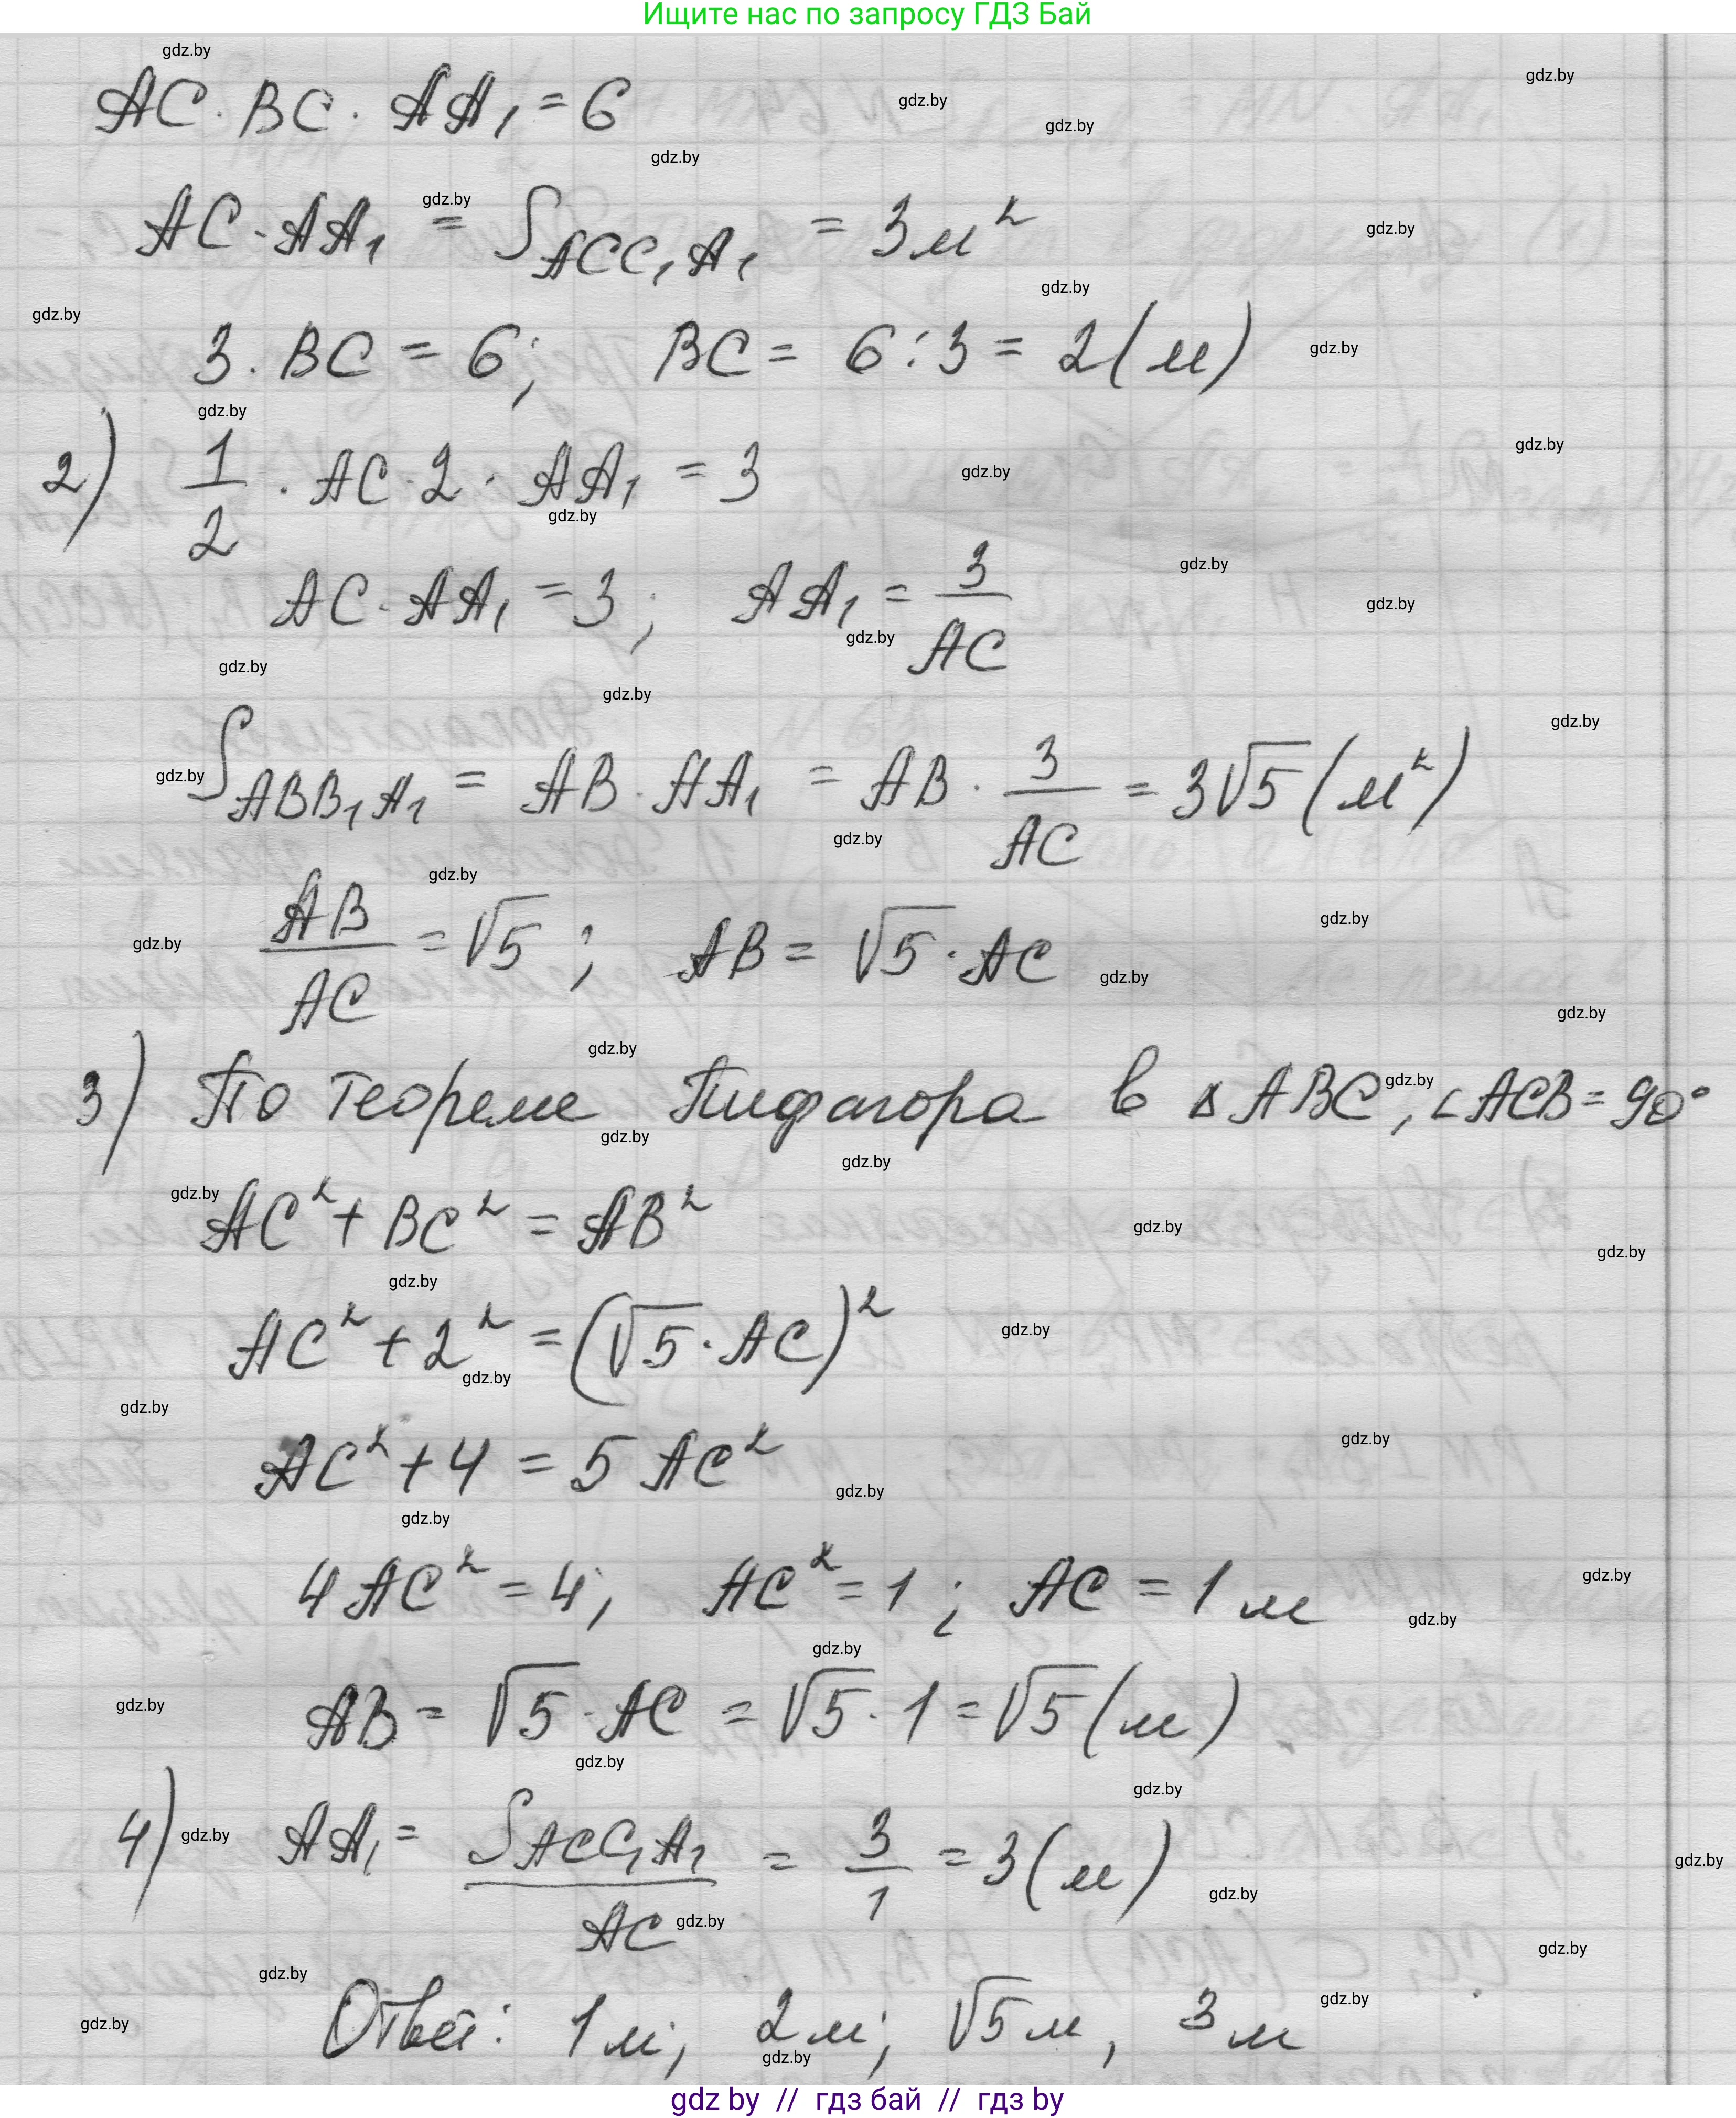 Ищите нас по запросу ГДЗ Бай
AC · BC · AA₁ = 6
AC · AA₁ = S_ACC₁A₁ = 3 м²
3 · BC = 6; BC = 6 : 3 = 2 (м)
2) 1/2 · AC · 2 · AA₁ = 3
AC · AA₁ = 3; AA₁ = 3/AC
S_ABB₁A₁ = AB · AA₁ = AB · 3/AC = 3√5 (м²)
AB/AC = √5; AB = √5 · AC
3) По теореме Пифагора в △ABC, ∠ACB = 90°
AC² + BC² = AB²
AC² + 2² = (√5 · AC)²
AC² + 4 = 5 AC²
4AC² = 4, AC² = 1; AC = 1 м
AB = √5 · AC = √5 · 1 = √5 (м)
4) AA₁ = S_ACC₁A₁/AC = 3/1 = 3 (м)
Ответ: 1 м; 2 м; √5 м, 3 м
gdz by // гдз бай // гдз by